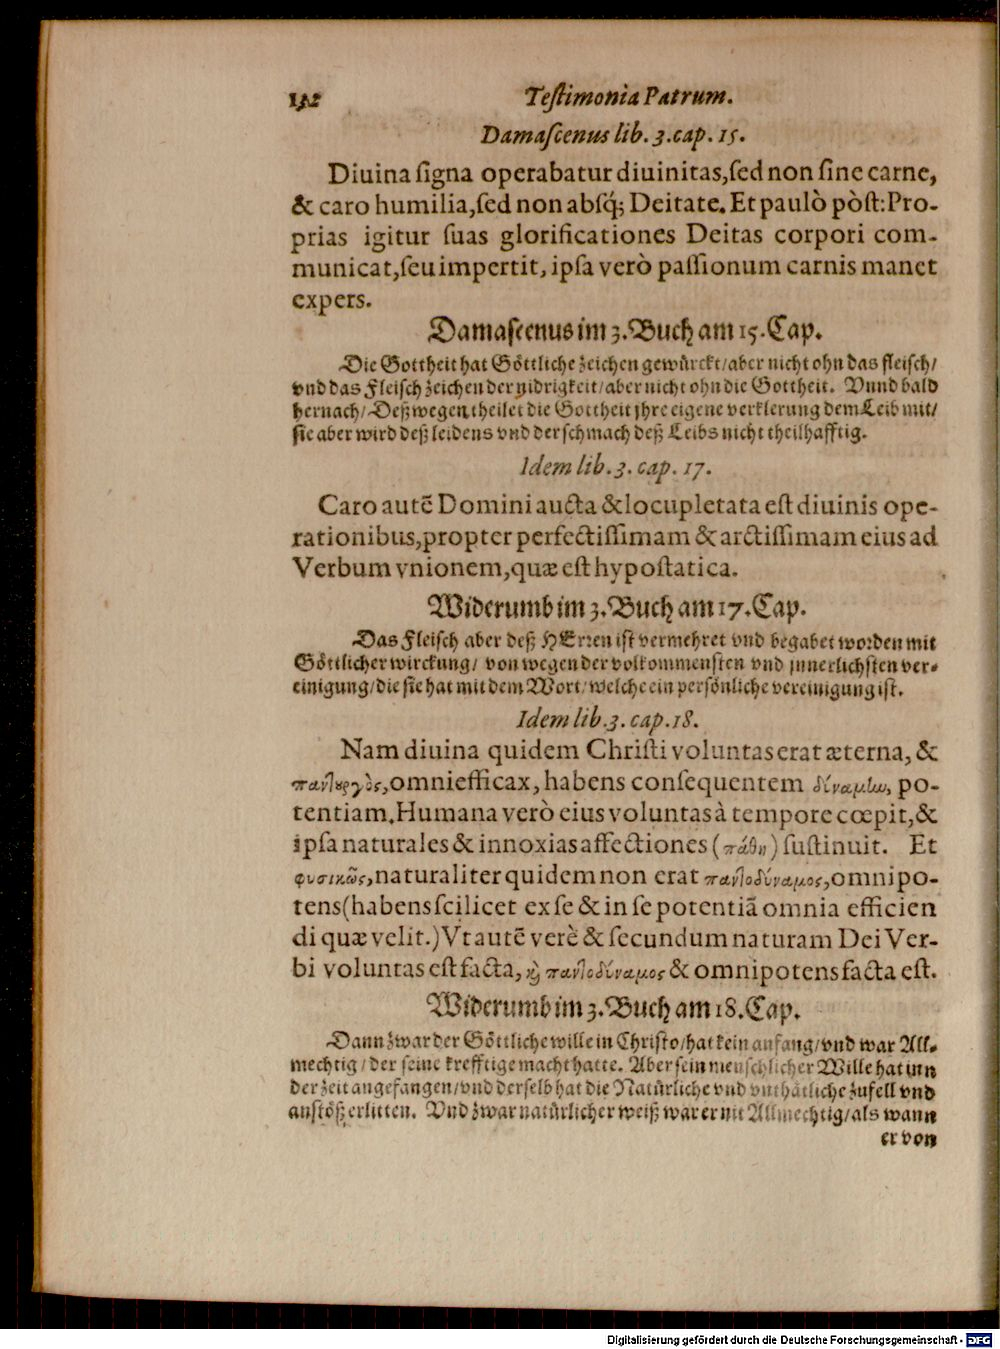 152 Teſtimonia Patrum.
Damaſcenus lib. 3. cap. 15.
Diuina ſigna operabatur diuinitas, ſed non ſine carne,
& caro humilia, ſed non abſq́; Deitate. Et paulò pòſt: Pro-
prias igitur ſuas glorificationes Deitas corpori com-
municat, ſeu impertit, ipſa verò paſſionum carnis manet
expers.
Damaſcenus im 3. Buch am 15. Cap.
Die Gottheit hat Göttliche zeichen gewürckt/ aber nicht ohn das fleiſch/
vnd das Fleiſch zeichen der nidrigkeit/ aber nicht ohn die Gottheit. Vnnd bald
hernach/ Deßwegen theilet die Gottheit jhre eigene verklerung dem Leib mit/
ſie aber wird deß leidens vnd der ſchmach deß Leibs nicht theilhafftig.
Idem lib. 3. cap. 17.
Caro autē Domini aucta & locupletata eſt diuinis ope-
rationibus, propter perfectiſſimam & arctiſſimam eius ad
Verbum vnionem, quæ eſt hypoſtatica.
Widerumb im 3. Buch am 17. Cap.
Das Fleiſch aber deß HErren iſt vermehret vnd begabet worden mit
Göttlicher wirckung/ von wegen der volkommenſten vnd jnnerlichſten ver-
einigung/ die ſie hat mit dem Wort/ welche ein perſönliche vereinigung iſt.
Idem lib. 3. cap. 18.
Nam diuina quidem Chriſti voluntas erat æterna, &
παντουργὸς, omniefficax, habens conſequentem δύναμιν, po-
tentiam. Humana verò eius voluntas à tempore cœpit, &
ipſa naturales & innoxias affectiones (πάθη) ſuſtinuit. Et
φυσικῶς, naturaliter quidem non erat παντοδύναμος, omnipo-
tens (habens ſcilicet ex ſe & in ſe potentiā omnia efficien
di quæ velit.) Vt autē verè & ſecundum naturam Dei Ver-
bi voluntas eſt facta, καὶ παντοδύναμος & omnipotens facta eſt.
Widerumb im 3. Buch am 18. Cap.
Dann zwar der Göttliche wille in Chriſto/ hat kein anfang/ vnd war All-
mechtig/ der ſeine krefftige macht hatte. Aber ſein menſchlicher Wille hat inn
der zeit angefangen/ vnd derſelb hat die Natürliche vnd vnthätliche zufell vnd
anſtöß erlitten. Vnd zwar natürlicher weiß war er nit Allmechtig/ als wann
er von
Digitalisierung gefördert durch die Deutsche Forschungsgemeinschaft - DFG